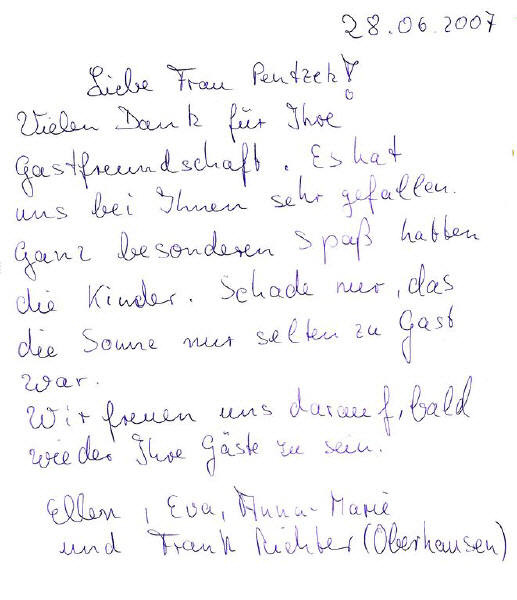 28.06.2007
Liebe Frau Pentzek!
Vielen Dank für Ihre
Gastfreundschaft. Es hat
uns bei Ihnen sehr gefallen.
Ganz besonderen Spaß habben
die Kinder. Schade nur, das
die Sonne nur selten zu Gast
war.
Wir freuen uns darauf, bald
wieder Ihre Gäste zu sein.
Ellen, Eva, Anna-Marie
und Frank Richter (Oberhausen)